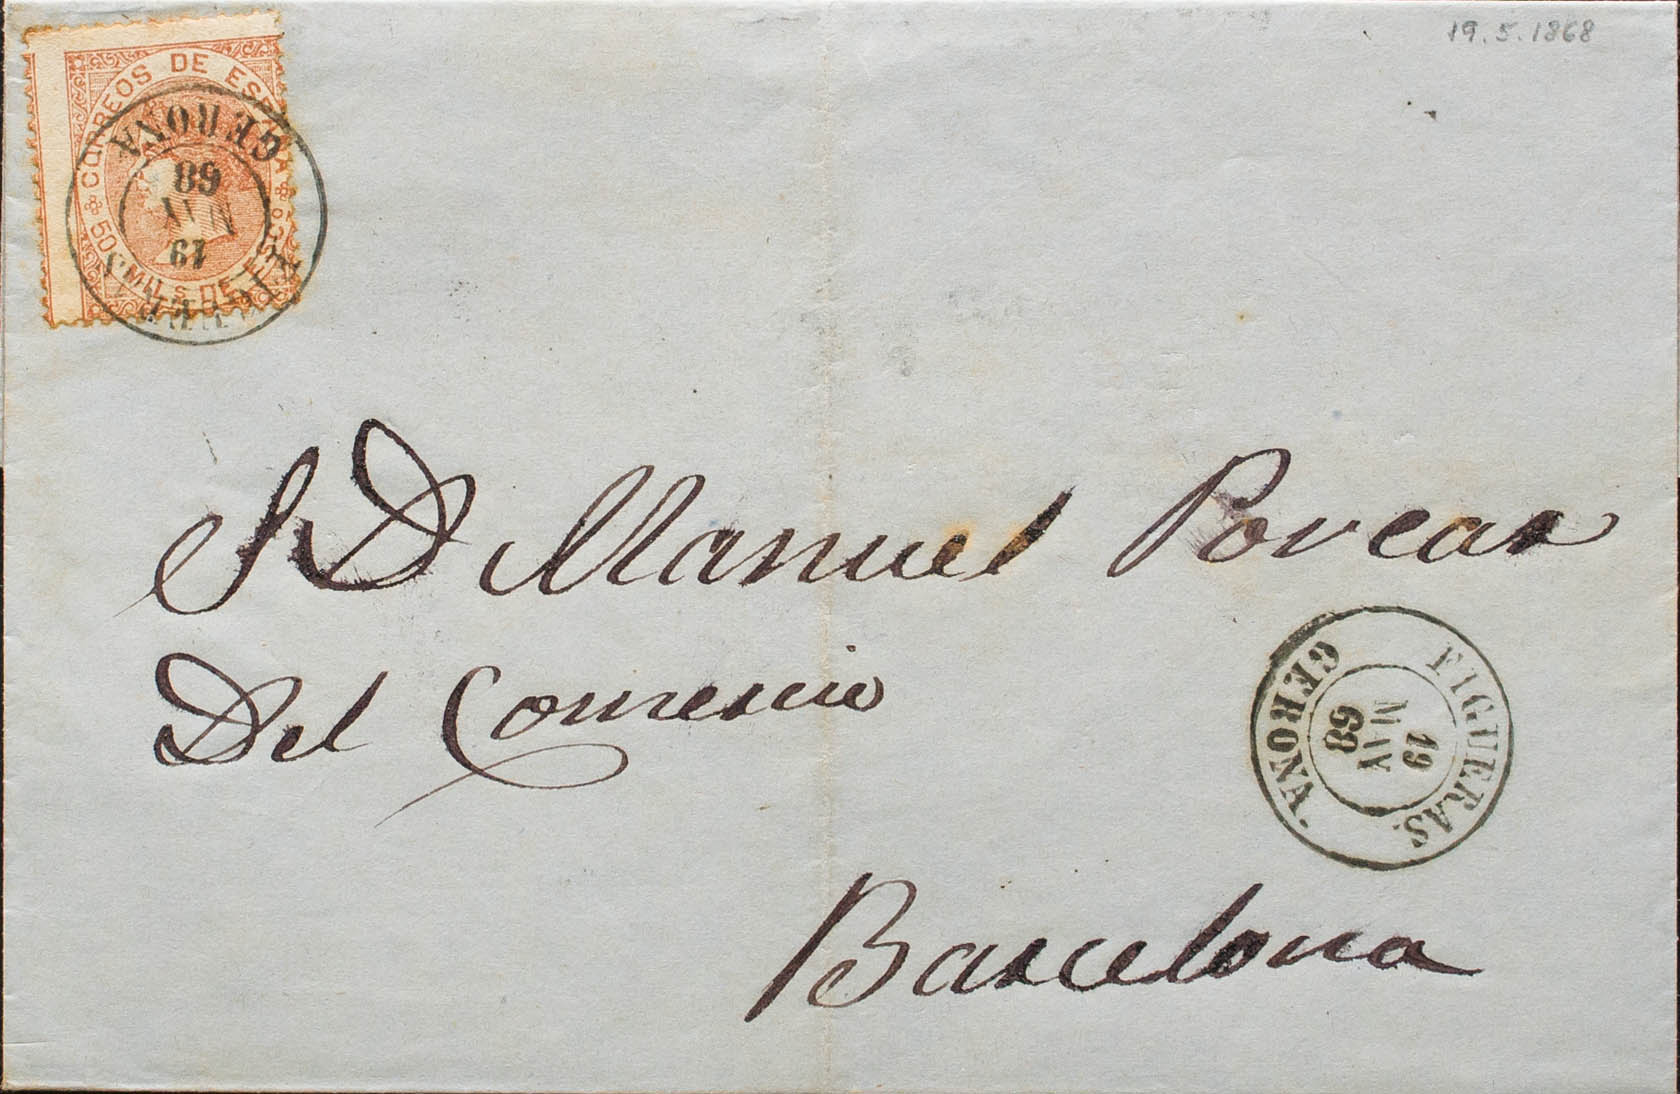 19.5.1868
CORREOS DE ESPAÑA
50 MILS DE ESCO
GERONA
68
MAY
19
FIGUERAS
S D Manuel Porcar
Del Comercio
FIGUERAS.
19
MAY
68
GERONA.
Barcelona